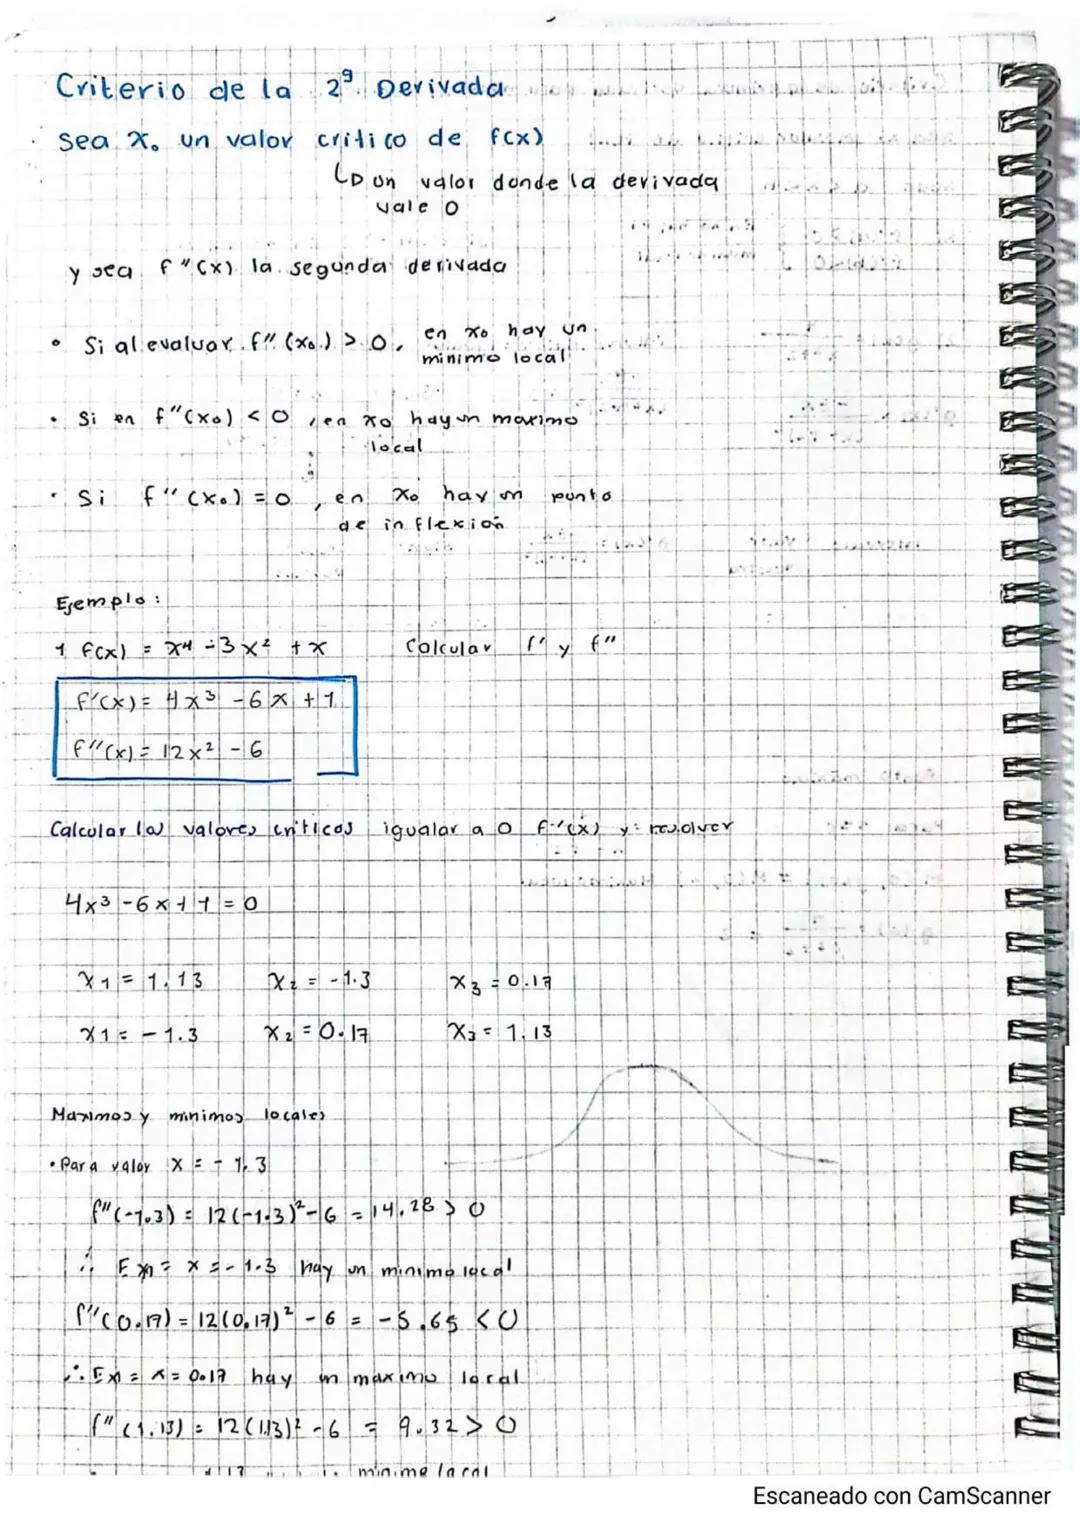 Criterio de la 2ª Derivada
Sea X₀ un valor critico de f(x)
↳ un valor donde la derivada
vale 0
y sea f"(x) la segunda derivada
• Si al evaluar f"(x₀) > 0, en x₀ hay un
minimo local
• Si en f"(x₀) < 0, en x₀ hay un maximo
local
• Si f"(x₀) = 0, en x₀ hay un punto
de inflexión
Ejemplo:
1 f(x) = x⁴ - 3x² + x Calcular f' y f"
f'(x) = 4x³ - 6x + 1
f"(x) = 12x² - 6
Calcular los valores criticos igualar a 0 f'(x) y resolver
4x³ - 6x + 1 = 0
X₁ = 1.13 X₂ = -1.3 X₃ = 0.17
X1 = -1.3 X₂ = 0.17 X₃ = 1.13
Maximos y minimos locales
• Para valor X = -1.3
f"(-1.3) = 12(-1.3)² - 6 = 14.28 > 0
∴ En = x = -1.3 hay un minimo local
f"(0.17) = 12(0.17)² - 6 = -5.65 < 0
∴ En = x = 0.17 hay un maximo local
f"(1.13) = 12(1.13)² - 6 = 9.32 > 0
minimo local
Escaneado con CamScanner